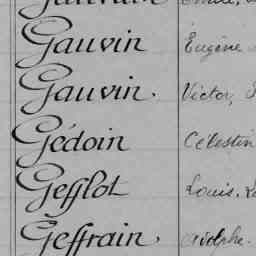 Gauvin Eugène
Gauvin. Victor,
Gédoin Célestin
Gefflot Louis.
Geffrain. Adolphe.